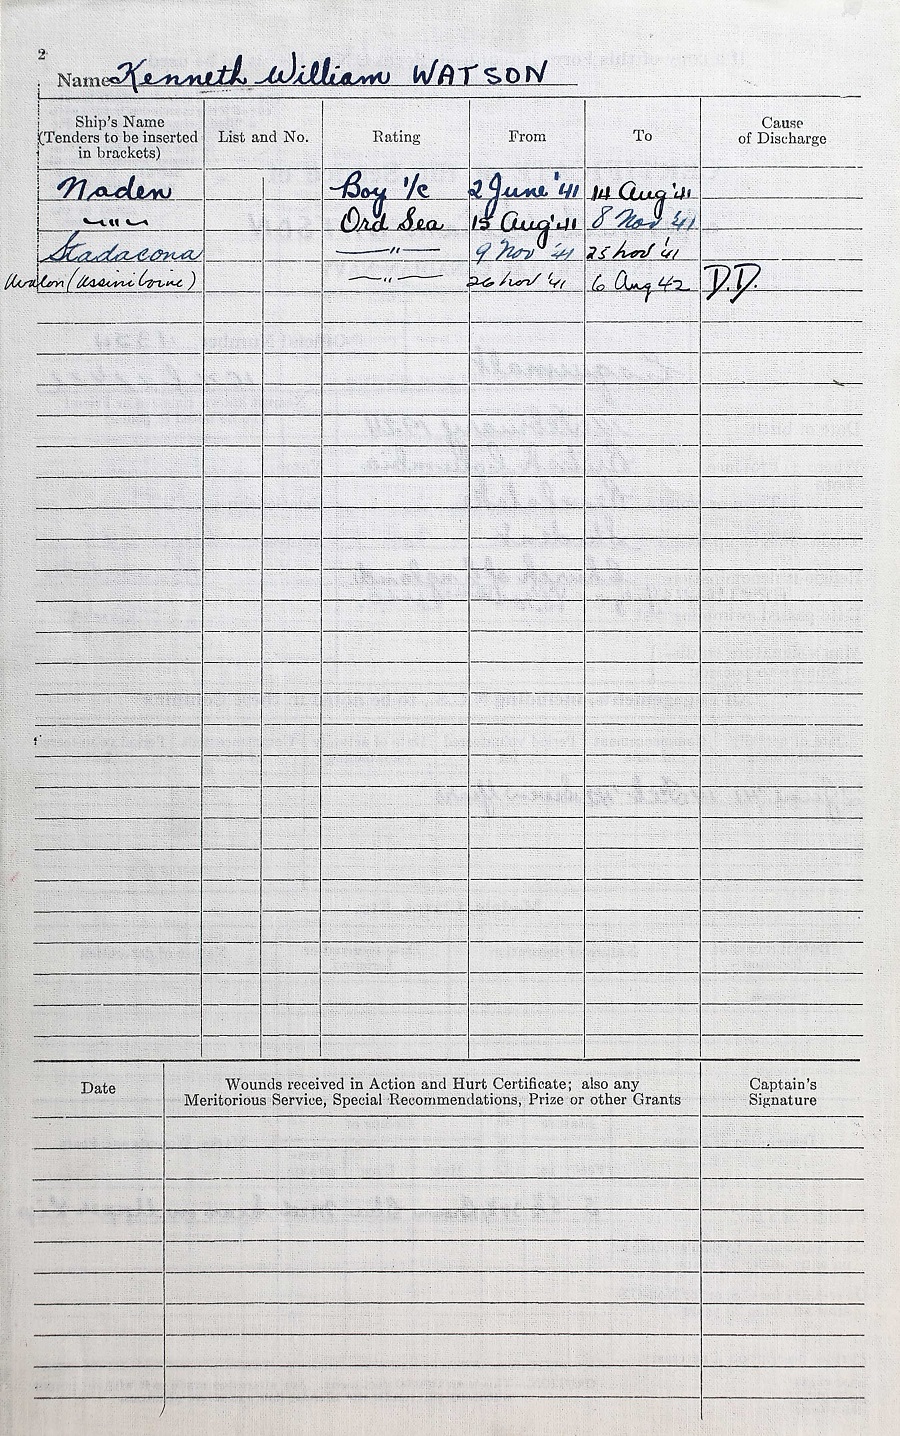 2
Name Kenneth William WATSON
Ship's Name (Tenders to be inserted in brackets) List and No. Rating From To Cause of Discharge
Naden Boy 1/c 2 June '41 14 Aug '41
" " " Ord Sea 15 Aug '41 8 Nov '41
Stadacona —"— 9 Nov '41 25 Nov '41
Avalon (Assiniboine) —"— 26 Nov '41 6 Aug 42 D.D.
Date Wounds received in Action and Hurt Certificate; also any Meritorious Service, Special Recommendations, Prize or other Grants Captain's Signature